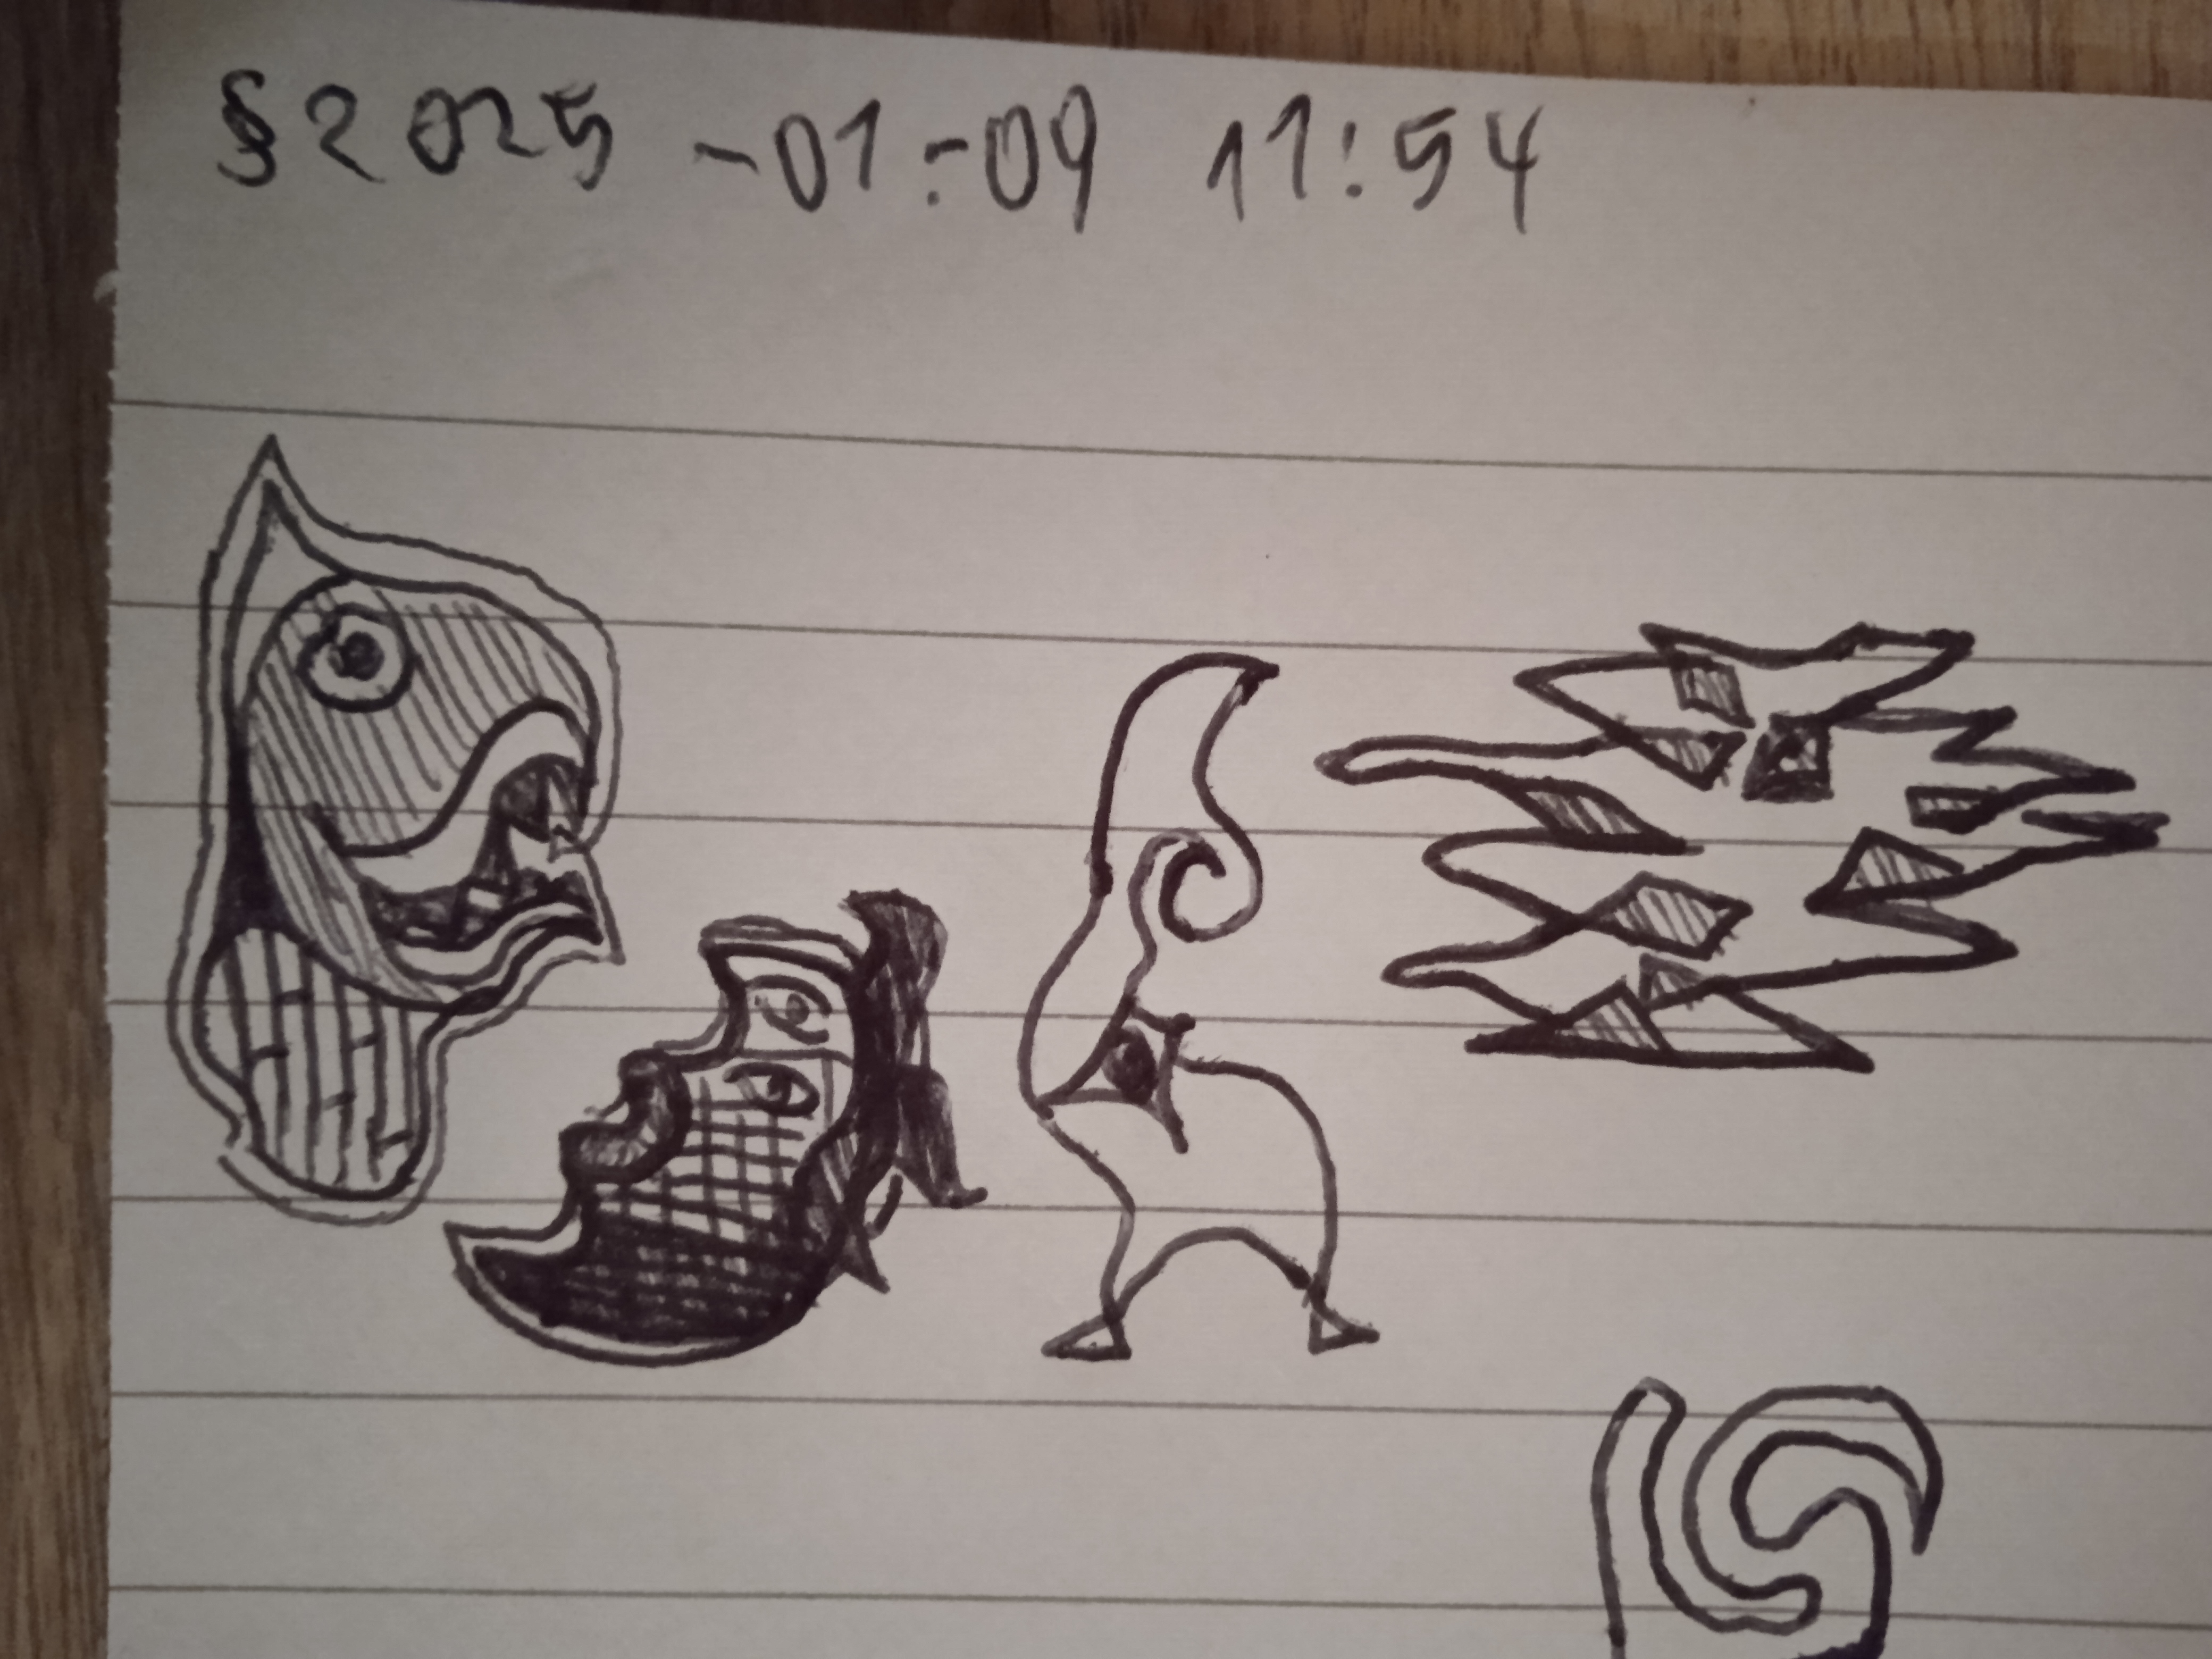 §2025 -01-09 11:54